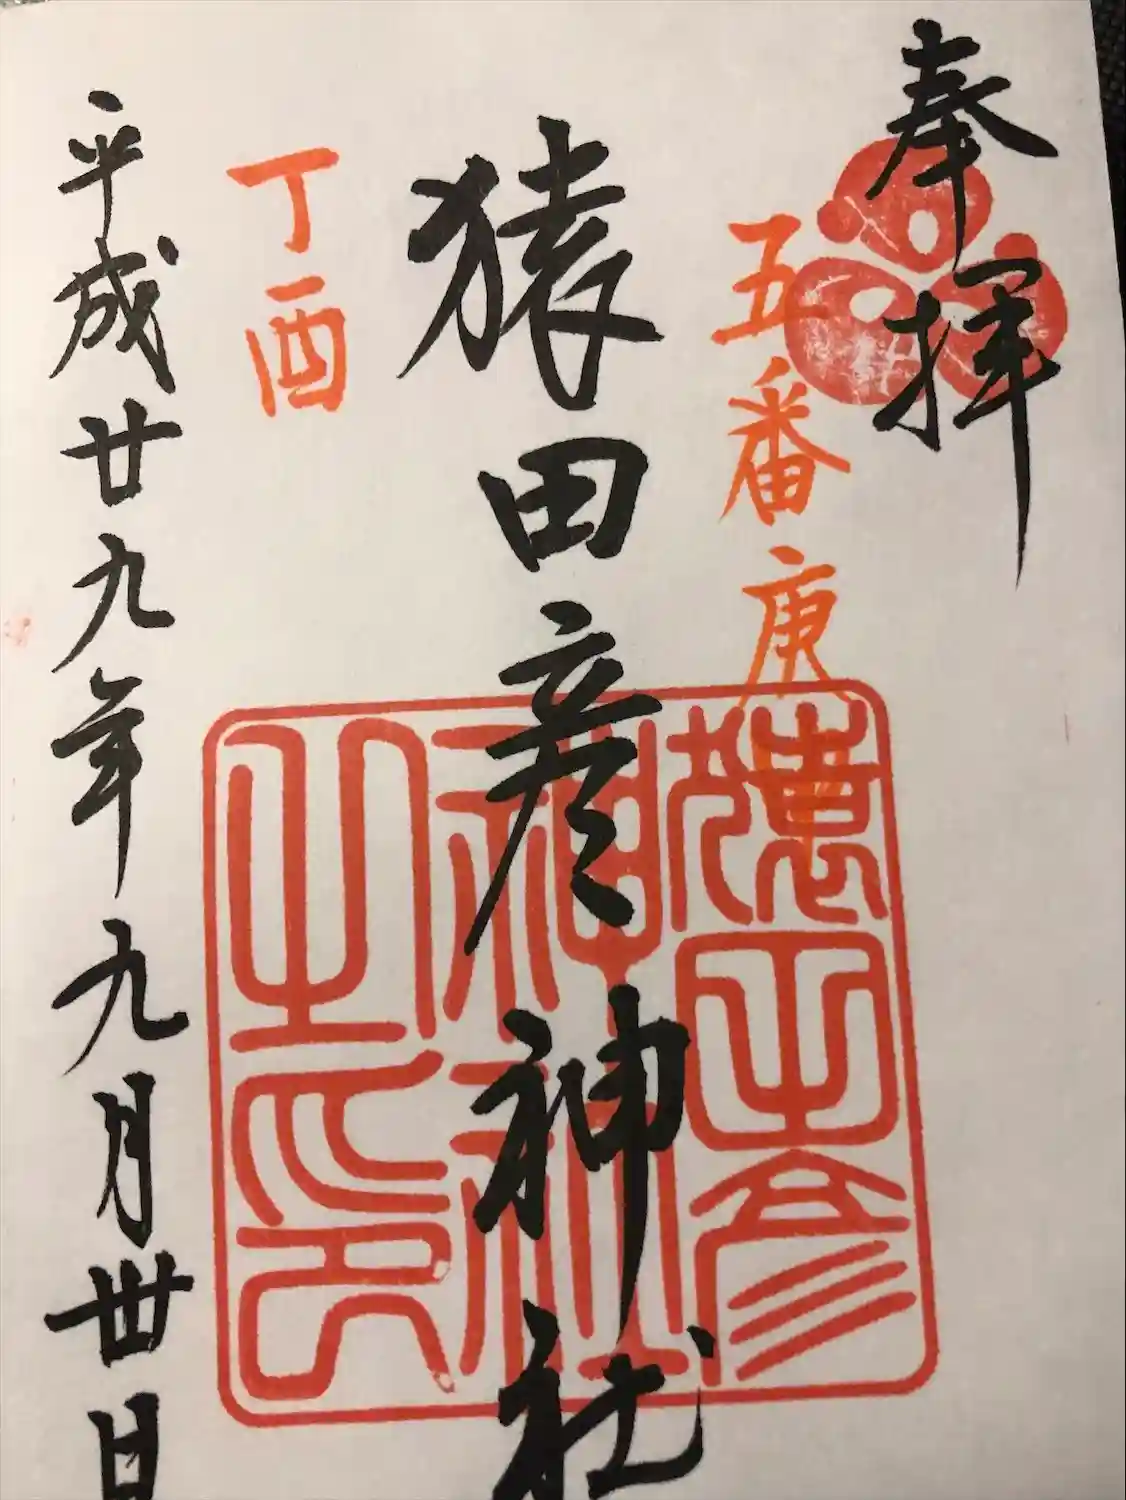 奉拝
五番庚申
猿田彦神社
猿田彦
神社
之印
丁酉
平成廿九年九月丗日